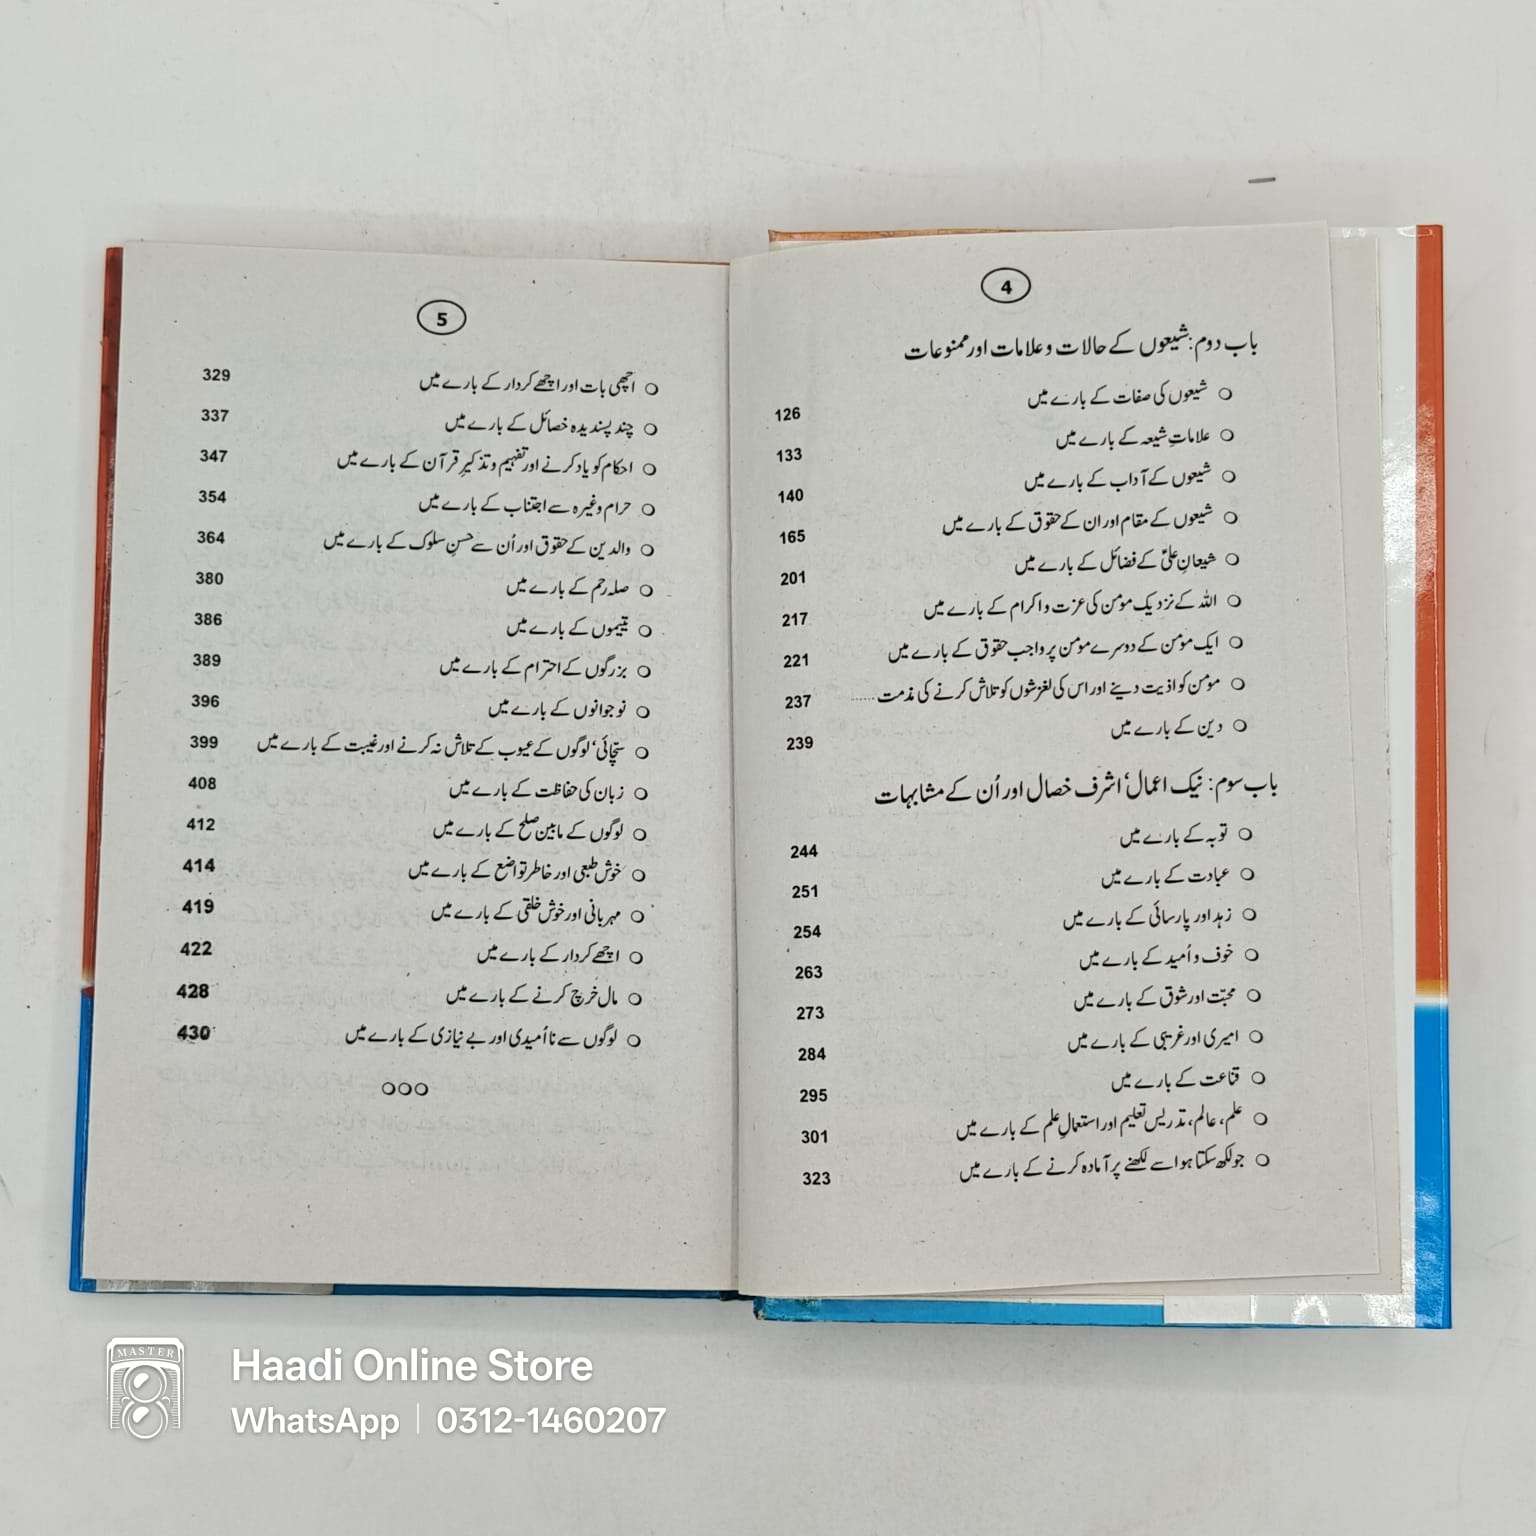 4
باب دوم: شیعوں کے حالات و علامات اور ممنوعات
شیعوں کی صفات کے بارے میں 126
علاماتِ شیعہ کے بارے میں 133
شیعوں کے آداب کے بارے میں 140
شیعوں کے مقام اور ان کے حقوق کے بارے میں 165
شیعانِ علیؑ کے فضائل کے بارے میں 201
اللہ کے نزدیک مومن کی عزت و اکرام کے بارے میں 217
ایک مومن کے دوسرے مومن پر واجب حقوق کے بارے میں 221
مومن کو اذیت دینے اور اس کی لغزشوں کو تلاش کرنے کی مذمت ...... 237
دین کے بارے میں 239
باب سوم: نیک اعمال، اشرف خصال اور اُن کے مشابہات
توبہ کے بارے میں 244
عبادت کے بارے میں 251
زہد اور پارسائی کے بارے میں 254
خوف و اُمید کے بارے میں 263
محبّت اور شوق کے بارے میں 273
امیری اور غریبی کے بارے میں 284
قناعت کے بارے میں 295
علم، عالم، تدریس تعلیم اور استعمالِ علم کے بارے میں 301
جو لکھ سکتا ہو اسے لکھنے پر آمادہ کرنے کے بارے میں 323
5
اچھی بات اور اچھے کردار کے بارے میں 329
چند پسندیدہ خصائل کے بارے میں 337
احکام کو یاد کرنے اور تفہیم و تذکیرِ قرآن کے بارے میں 347
حرام وغیرہ سے اجتناب کے بارے میں 354
والدین کے حقوق اور اُن سے حسنِ سلوک کے بارے میں 364
صلہ رحم کے بارے میں 380
یتیموں کے بارے میں 386
بزرگوں کے احترام کے بارے میں 389
نوجوانوں کے بارے میں 396
سچّائی، لوگوں کے عیوب کے تلاش نہ کرنے اور غیبت کے بارے میں 399
زبان کی حفاظت کے بارے میں 408
لوگوں کے مابین صلح کے بارے میں 412
خوش طبعی اور خاطر تواضع کے بارے میں 414
مہربانی اور خوش خلقی کے بارے میں 419
اچھے کردار کے بارے میں 422
مال خرچ کرنے کے بارے میں 428
لوگوں سے نا اُمیدی اور بے نیازی کے بارے میں 430
MASTER
Haadi Online Store
WhatsApp | 0312-1460207